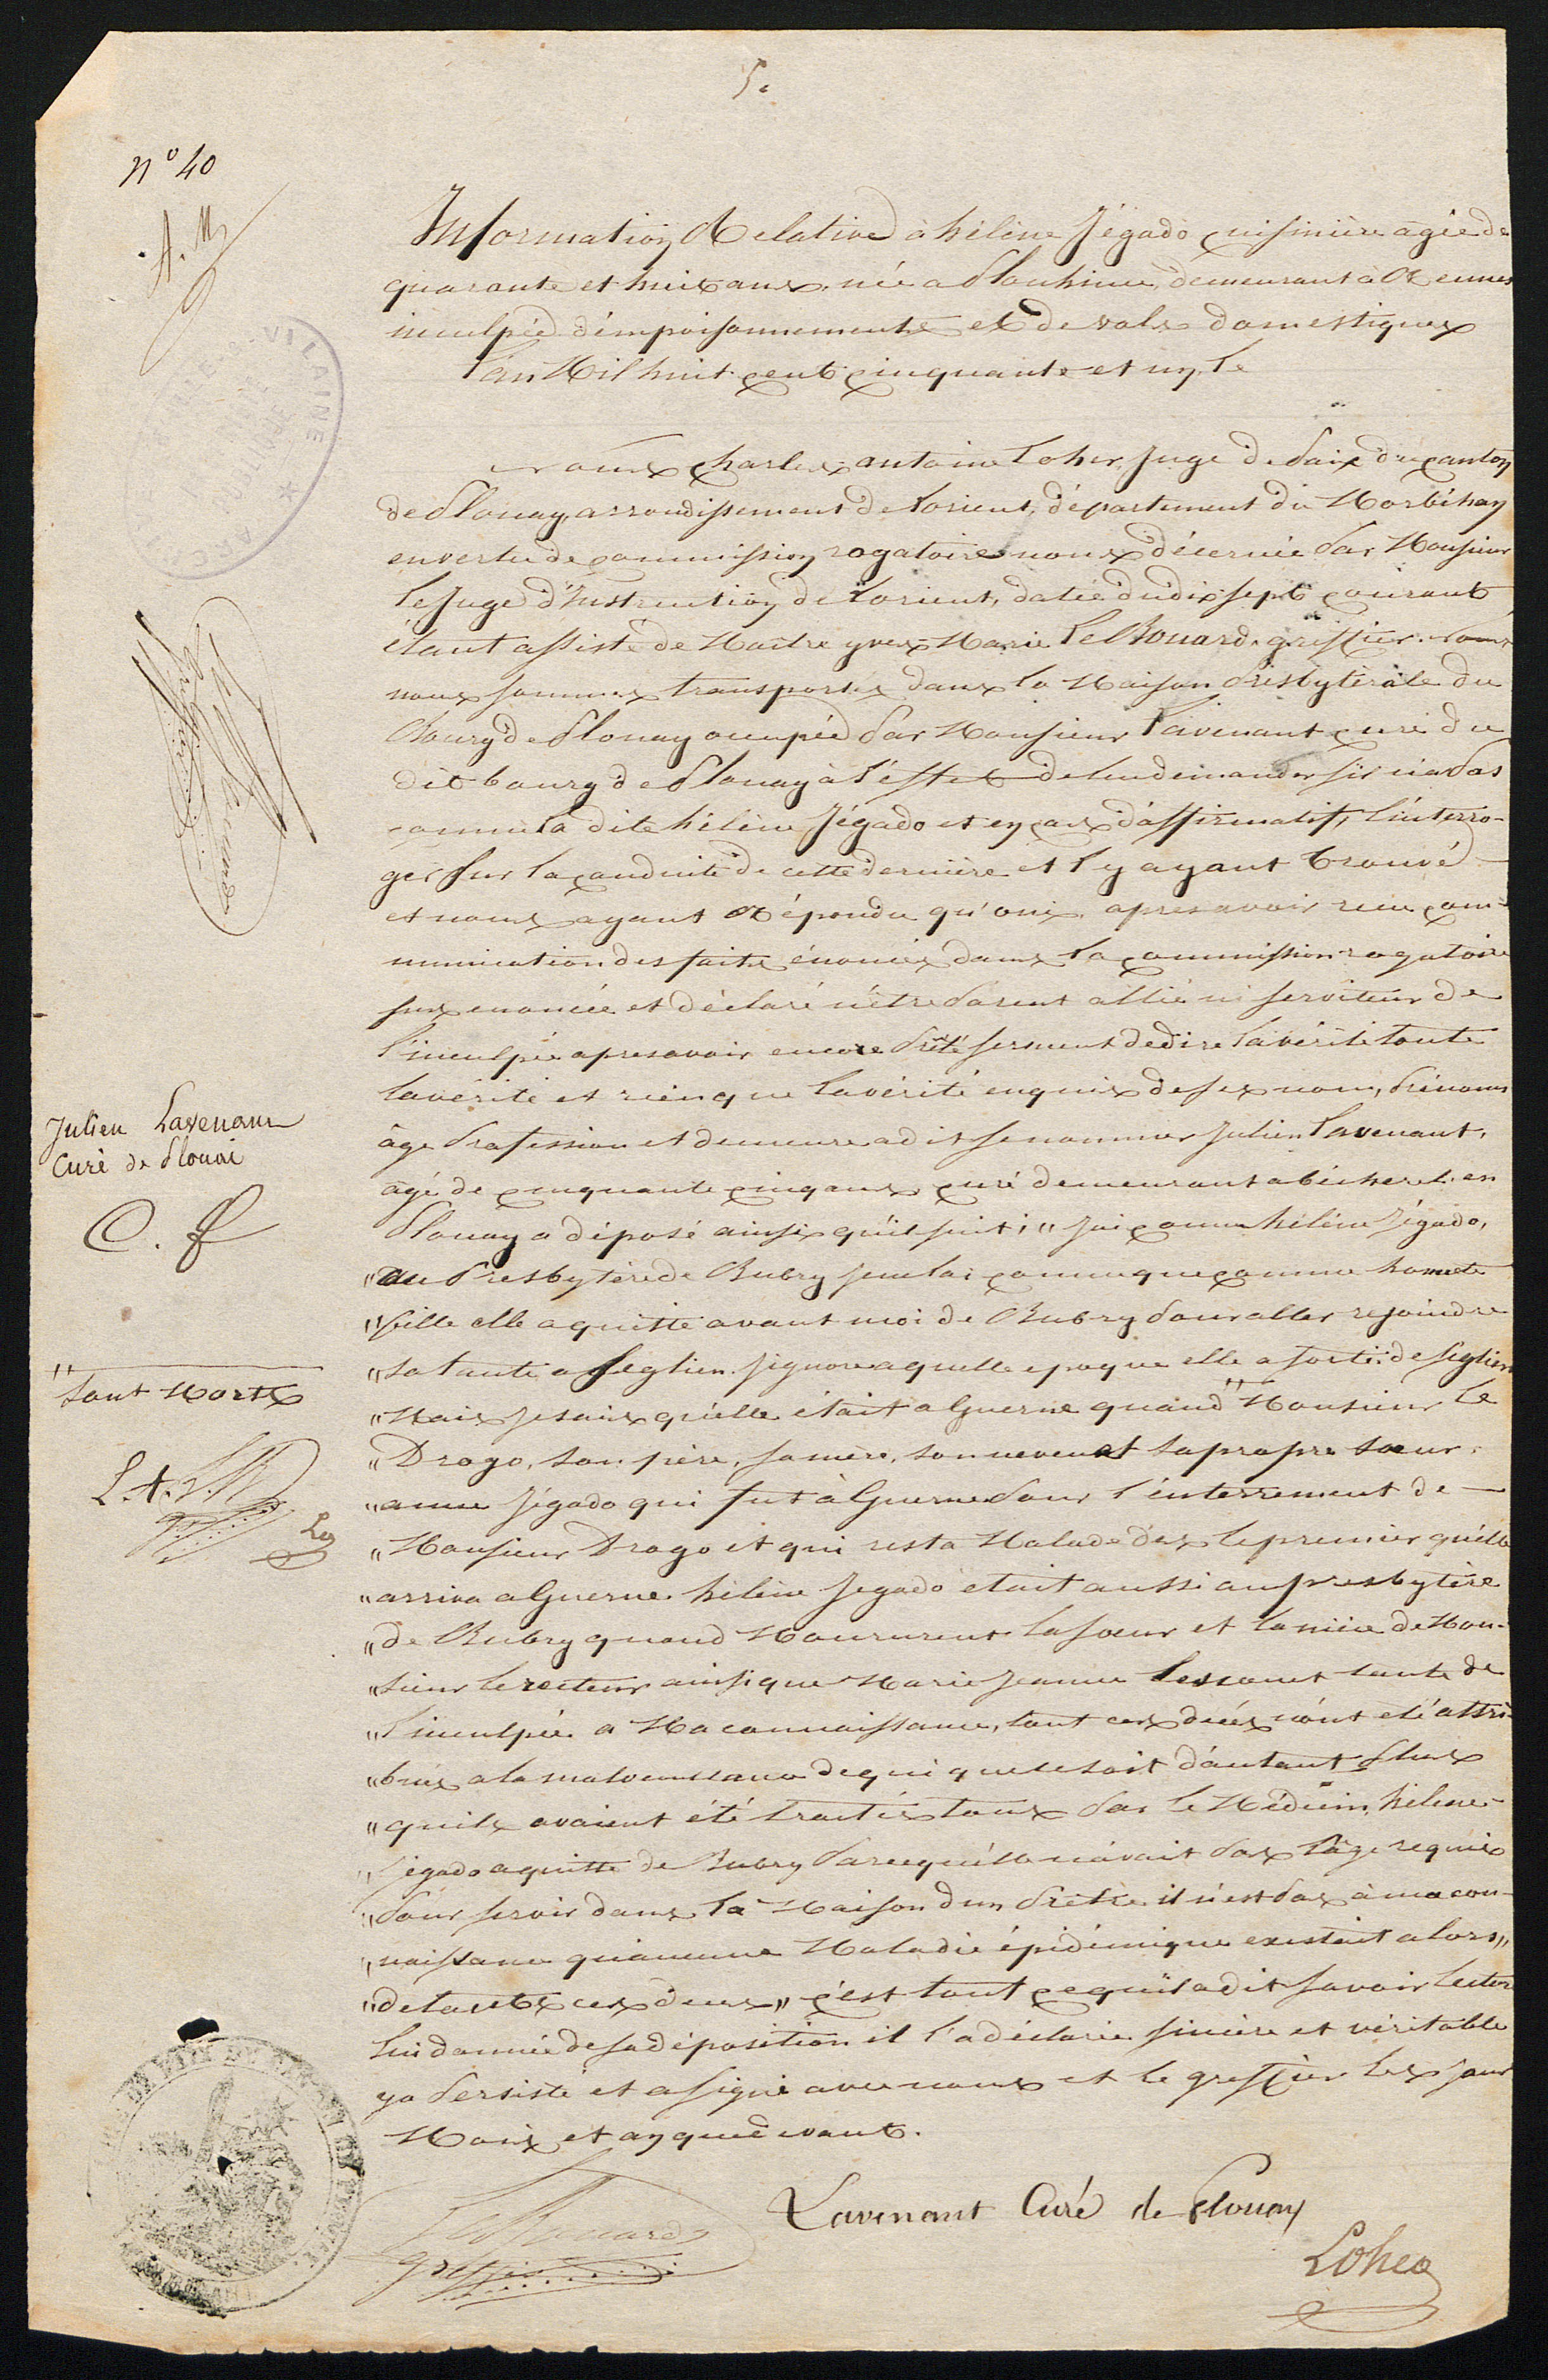 5e
N° 40
Information Relative à hélène Jégado cuisinière agée de
quarante et huit ans, née a Plouhinec, demeurant à Rennes
inculpée d'émpoisonnements et de vols domestiques
L'an Mil huit cent cinquante et un, le
Nous Charles antoine Loher Juge de Paix du canton
de Plouay, arrondissement de Lorient, département du Morbihan
en vertu de commission rogatoire nous décernée Par Monsieur
le Juge d'Instruction de Lorient, datée du dix sept courant
étant assisté de Maître yves Marie Le Rouard, greffier. Nous
nous sommes transportés dans la Maison Presbytérale du
Bourg de Plouay occupée Par Monsieur Lavenant curé du
dit bourg de Plouay à l'éffet de lui demander s'il n'a Pas
connu la dite hélène Jégado et en cas d'affirmatif, l'interro-
ger sur la conduite de cette dernière et l'y ayant trouvé
et nous ayant Répondu qu'oui, apres avoir reçu com-
munication des faits énoncés dans la commission rogatoire
sus enoncée et déclaré n'être Parent allié ni serviteur de
l'inculpée apres avoir encore Prêté serment de dire la vérité toute
la vérité et rien que la vérité enquis de ses nom, Prénoms
âge Profession et demeure a dit se nommer Julien Lavenant,
agé de cinquante cinq ans curé demeurant a bécherel en
Plouay a déposé ainsi qu'il suit: " J'ai connu hélène Jégado,
" au Presbytère de Bubry je ne l'ai connue que comme honnête
" fille elle a quitté avant moi de Bubry Pour aller rejoindre
" sa tante a Seglien. J'ignore a quelle epoque elle a sortie de Seglien
" Mais je sais qu'elle était a Guerne quand " Monsieur Le
" Drogo, son père, sa mère, son neveu et sa propre sœur,
" anne Jégado qui fut à Guerne Pour l'énterrement de
" Monsieur Drogo et qui resta Malade dès le premier qu'elle
" arriva a Guerne. hélène Jegado etait aussi au presbytère
" de Bubry quand Moururent la sœur et la nièce de Mon-
" sieur le recteur ainsi que Marie Jeanne Lescouet tante de
" l'inculpée. a Ma connaissance, tout ces décès n'ont été attri-
" bués a la malveillance de qui que ce soit d'autant Plus
" qu'ils avaient été traités tous Par le Médecin, hélène
" Jégado a quitté de Bubry Parcequ'elle n'avait Pas l'âge requis
" Pour servir dans la Maison d'un Prêtre il n'est Pas à ma con-
" naissance qu'aucune Maladie épidémique existait alors "
" de ces deux " c'est tout ce qu'il a dit savoir lecture
lui donnée de sa déposition il l'a déclarée sincère et véritable
y a Persisté et a signé avec nous et le greffier les jour
Mois et an que devant.
Julien Lavenant
Curé de Plouai
" sont Morts
L. A. L. R
Le Rouard
greffier
Lavenant Curé de Plouay
Loher